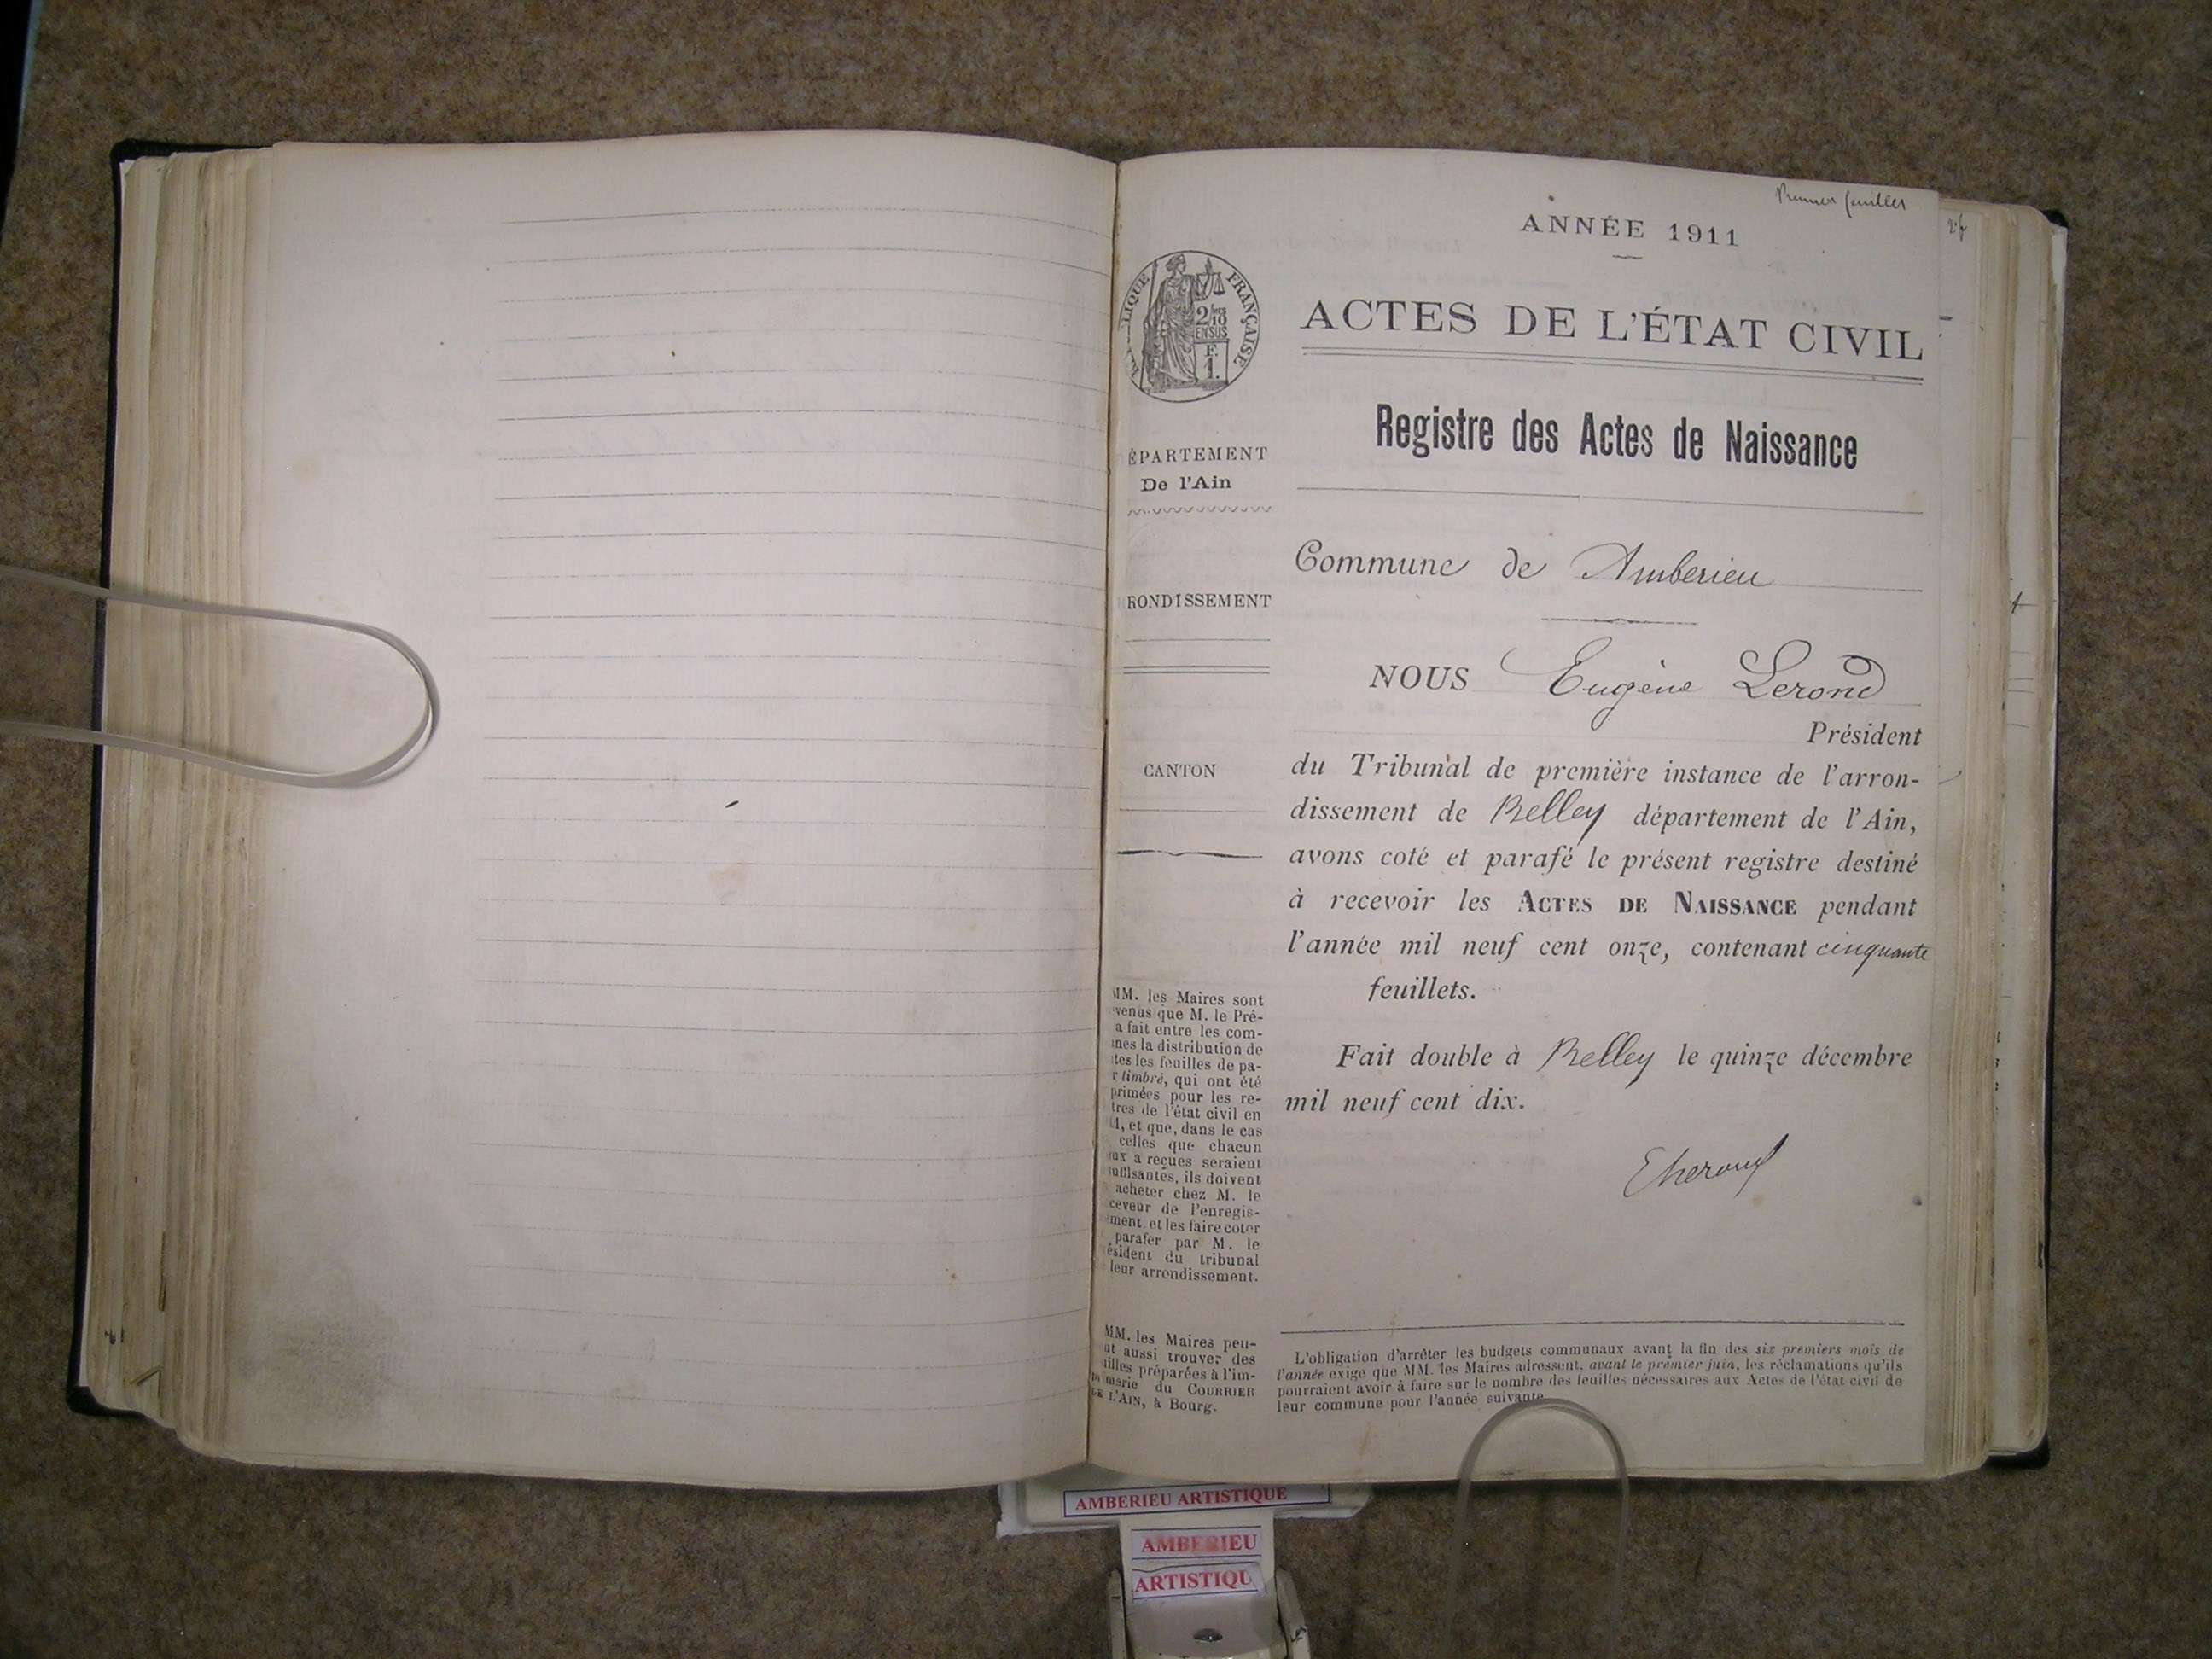 Premier feuillet
ANNÉE 1911
ACTES DE L'ÉTAT CIVIL
LIQUE FRANÇAISE
2/10
EN SUS
F.
1.
Registre des Actes de Naissance
ÉPARTEMENT
De l'Ain
Commune de Amberieu
RONDISSEMENT
NOUS Eugène Lerond
Président
du Tribunal de première instance de l'arron-
dissement de Belley département de l'Ain,
avons coté et parafé le présent registre destiné
à recevoir les ACTES DE NAISSANCE pendant
l'année mil neuf cent onze, contenant cinquante
feuillets.
Fait double à Belley le quinze décembre
mil neuf cent dix.
CANTON
MM. les Maires sont
venus que M. le Pré-
a fait entre les com-
nes la distribution de
tes les feuilles de pa-
r timbré, qui ont été
primées pour les re-
tres de l'état civil en
1, et que, dans le cas
celles que chacun
ux a reçues seraient
suffisantes, ils doivent
acheter chez M. le
ceveur de l'enregis-
ment et les faire coter
parafer par M. le
ésident du tribunal
leur arrondissement.
MM. les Maires peu-
nt aussi trouver des
illes préparées à l'im-
merie du COURRIER
DE L'AIN, à Bourg.
L'obligation d'arrêter les budgets communaux avant la fin des six premiers mois de
l'année exige que MM. les Maires adressent, avant le premier juin, les réclamations qu'ils
pourraient avoir à faire sur le nombre des feuilles nécessaires aux Actes de l'état civil de
leur commune pour l'année suivante
AMBERIEU ARTISTIQUE
AMBERIEU
ARTISTIQU